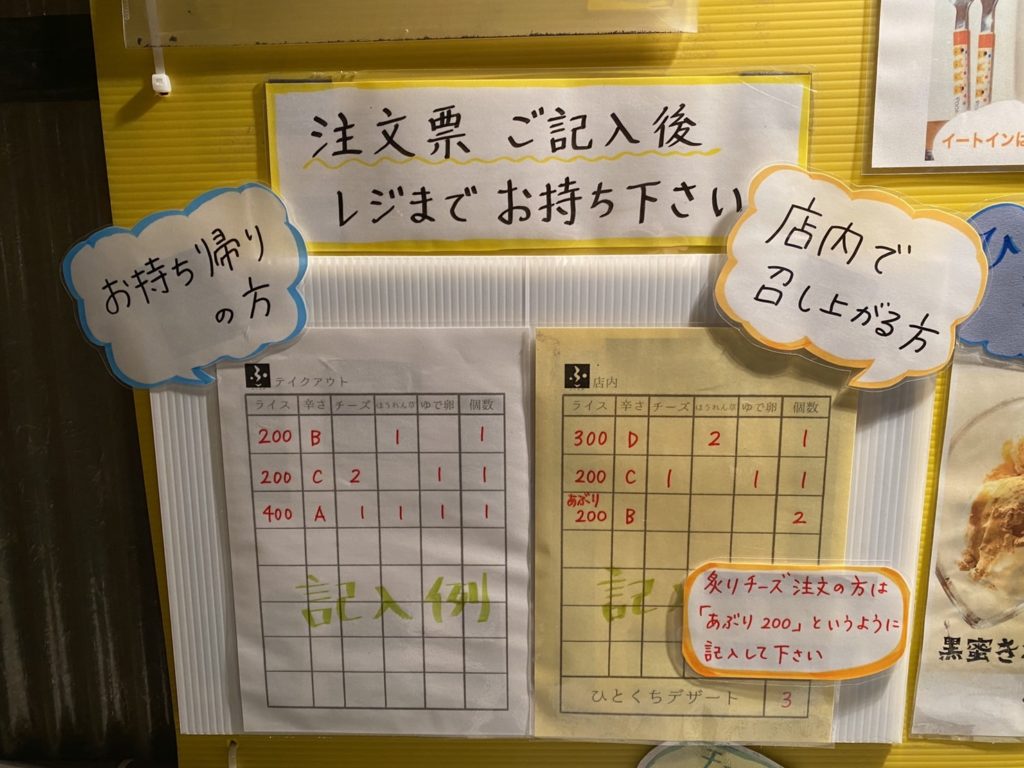 注文票 ご記入後
レジまで お持ち下さい
イートインは
お持ち帰り
の方
店内で
召し上がる方
ひ
ふ テイクアウト
ライス 辛さ チーズ ほうれん草 ゆで卵 個数
200 B 1 1
200 C 2 1 1
400 A 1 1 1 1
記入例
ふ 店内
ライス 辛さ チーズ ほうれん草 ゆで卵 個数
300 D 2 1
200 C 1 1 1
あぶり
200 B 2
記入
ひとくちデザート 3
炙りチーズ注文の方は
「あぶり200」というように
記入して下さい
黒蜜き
チ